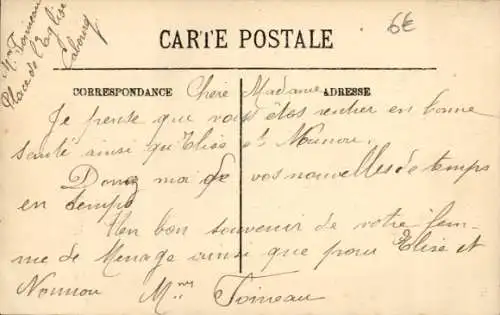 Mme Toineau
Place de l'Eglise
6€
CARTE POSTALE
CORRESPONDANCE
ADRESSE
Chère Madame
Je pense que vous êtes rentrer en bonne
santé ainsi qu'Elise et Nounou.
Donnez moi de vos nouvelles de temps
en temps
Un bon souvenir de votre fem-
me de Menage ainsi que pour Elise et
Nounou Mme Toineau